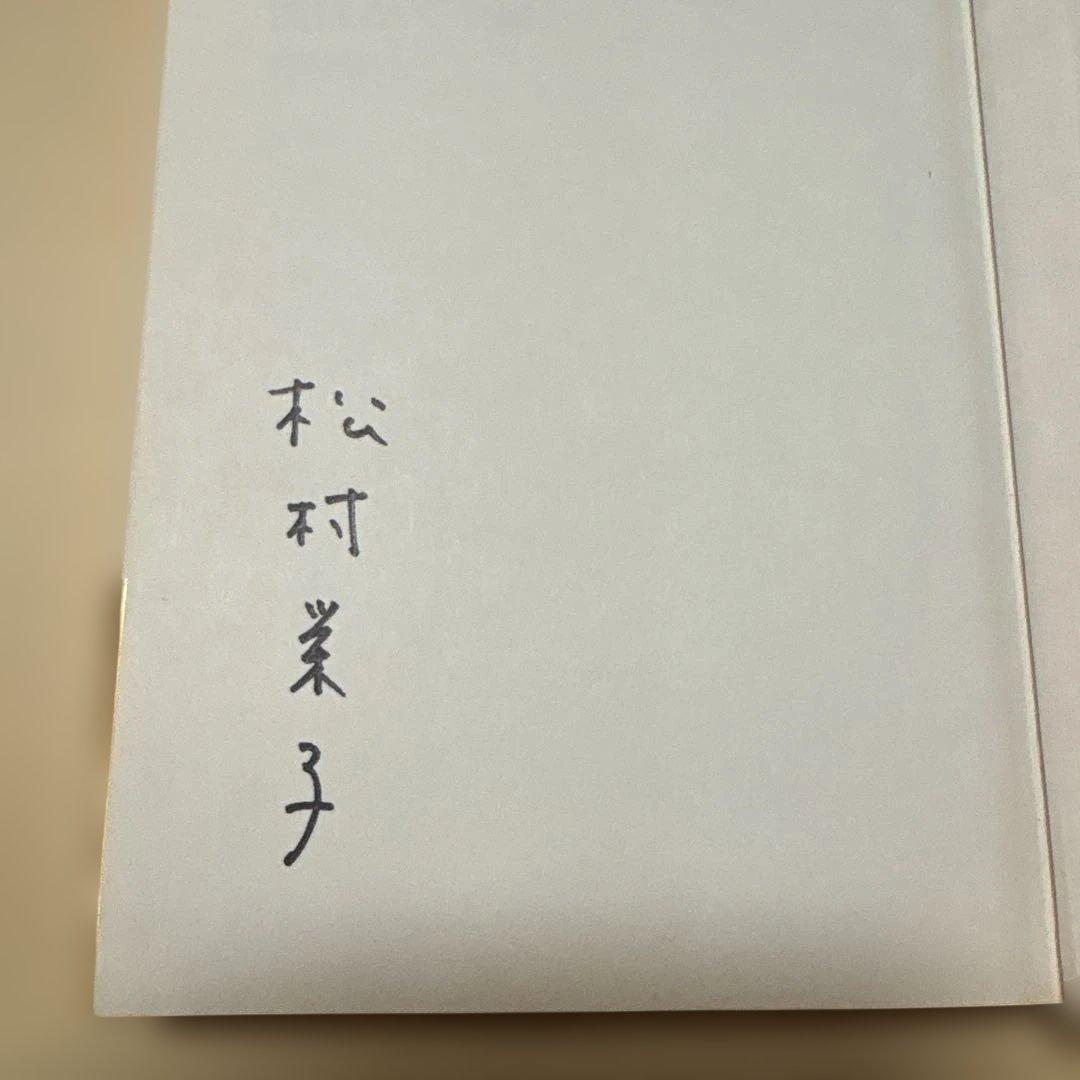 松村栄子